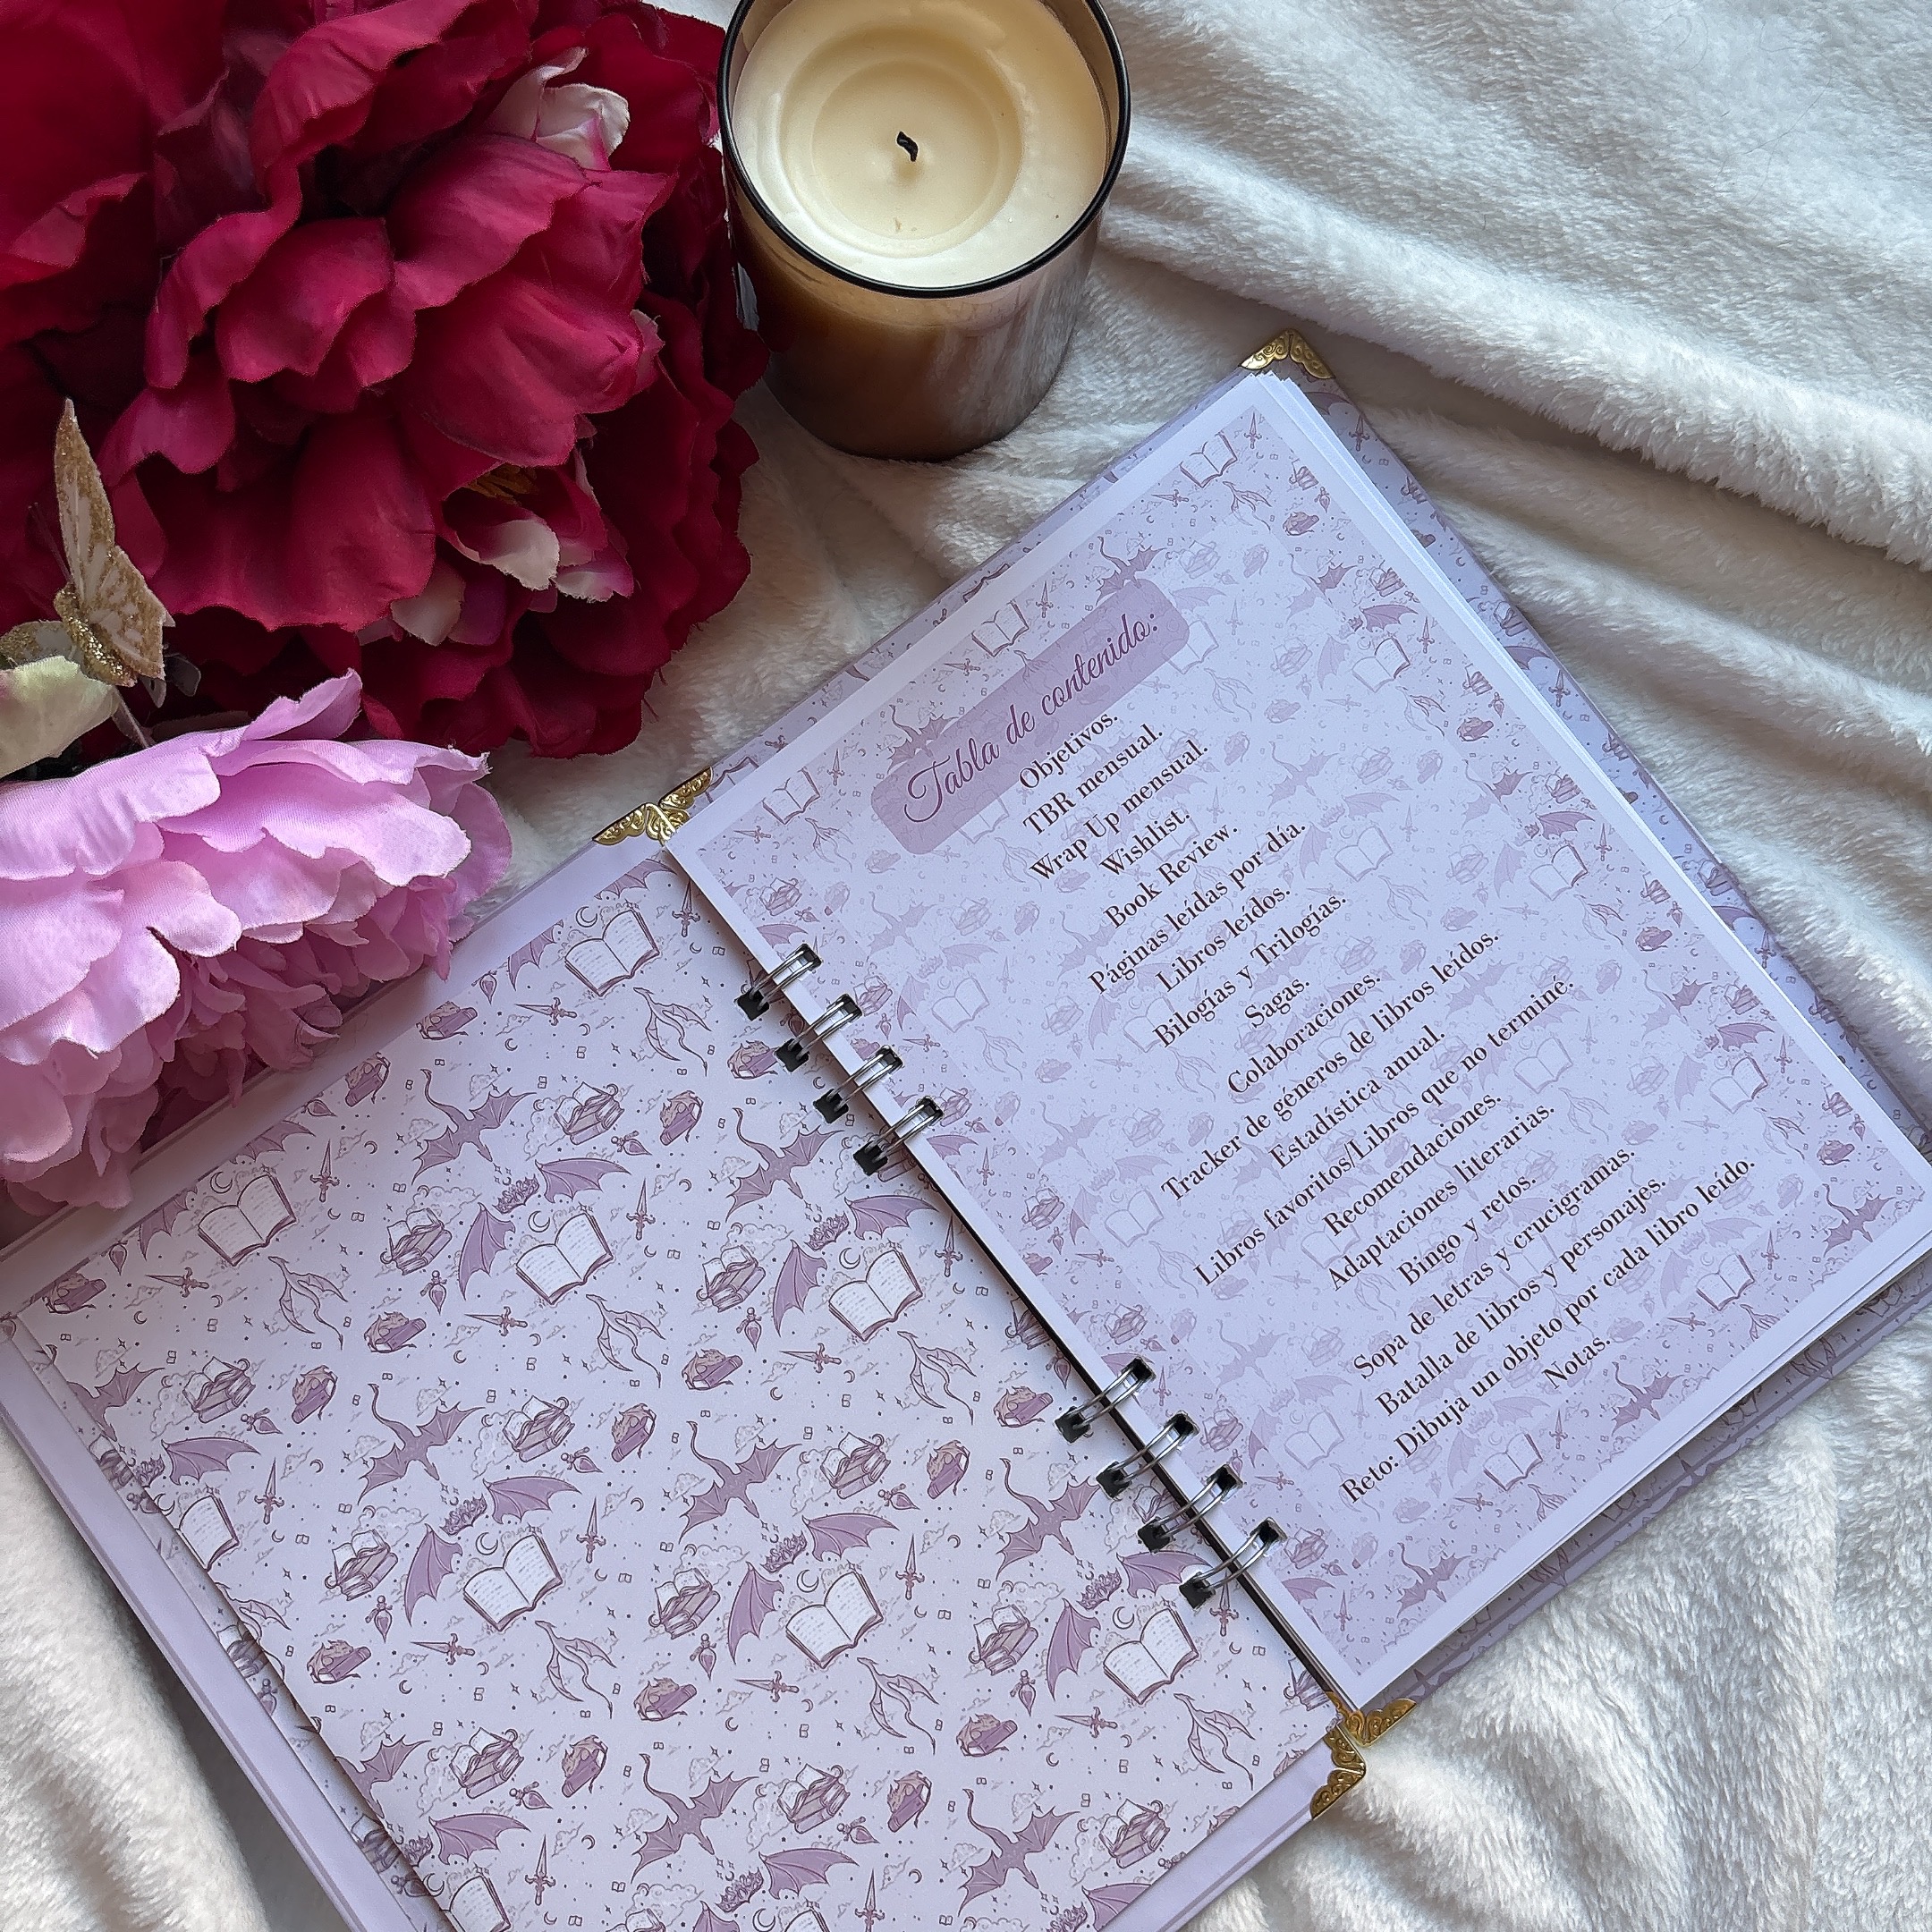 Tabla de contenido:
Objetivos.
TBR mensual.
Wrap Up mensual.
Wishlist.
Book Review.
Páginas leídas por día.
Libros leídos.
Bilogías y Trilogías.
Sagas.
Colaboraciones.
Tracker de géneros de libros leídos.
Estadística anual.
Libros favoritos/Libros que no terminé.
Recomendaciones.
Adaptaciones literarias.
Bingo y retos.
Sopa de letras y crucigramas.
Batalla de libros y personajes.
Reto: Dibuja un objeto por cada libro leído.
Notas.